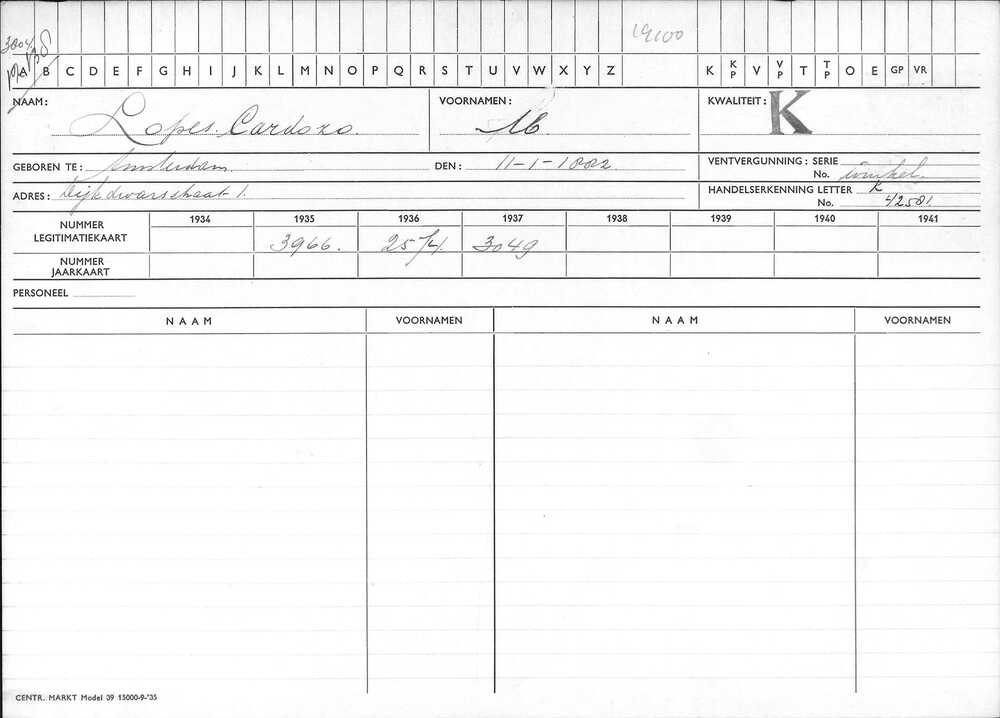 19100
3804
A B C D E F G H I J K L M N O P Q R S T U V W X Y Z K KP V VP T TP O E GP VR
NAAM: Lopes Cardozo. VOORNAMEN: M. KWALITEIT: K
GEBOREN TE: Amsterdam DEN: 11-1-1882 VENTVERGUNNING: SERIE
No. winkel
ADRES: Dijkdwarsstraat 1. HANDELSERKENNING LETTER K
No. 42581
1934 1935 1936 1937 1938 1939 1940 1941
NUMMER LEGITIMATIEKAART 3966. 2574 3049
NUMMER JAARKAART
PERSONEEL
NAAM VOORNAMEN NAAM VOORNAMEN
CENTR. MARKT Model 39 15000-9-'35